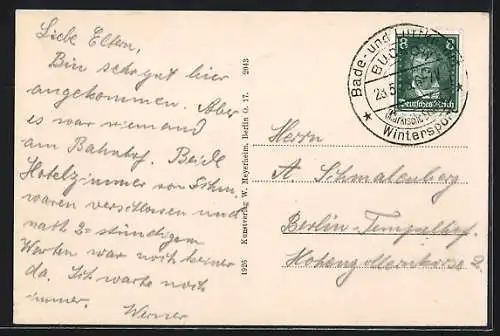 Liebe Eltern,
Bin sehr gut hier
angekommen. Aber
es war niemand
am Bahnhof. Beide
Hotelzimmer von
waren verschlossen und
nach 2-stündigem
Warten war noch keiner
da. Ich warte noch
immer. Werner
1926 Kunstverlag W. Meyerheim, Berlin O. 17. 2043
Bade- und
BUCKOW
Märkische
Wintersport
8 8
Deutsches Reich
Herrn
A Schmalenberg
Berlin-Tempelhof.
Hohenzollernkorso 2